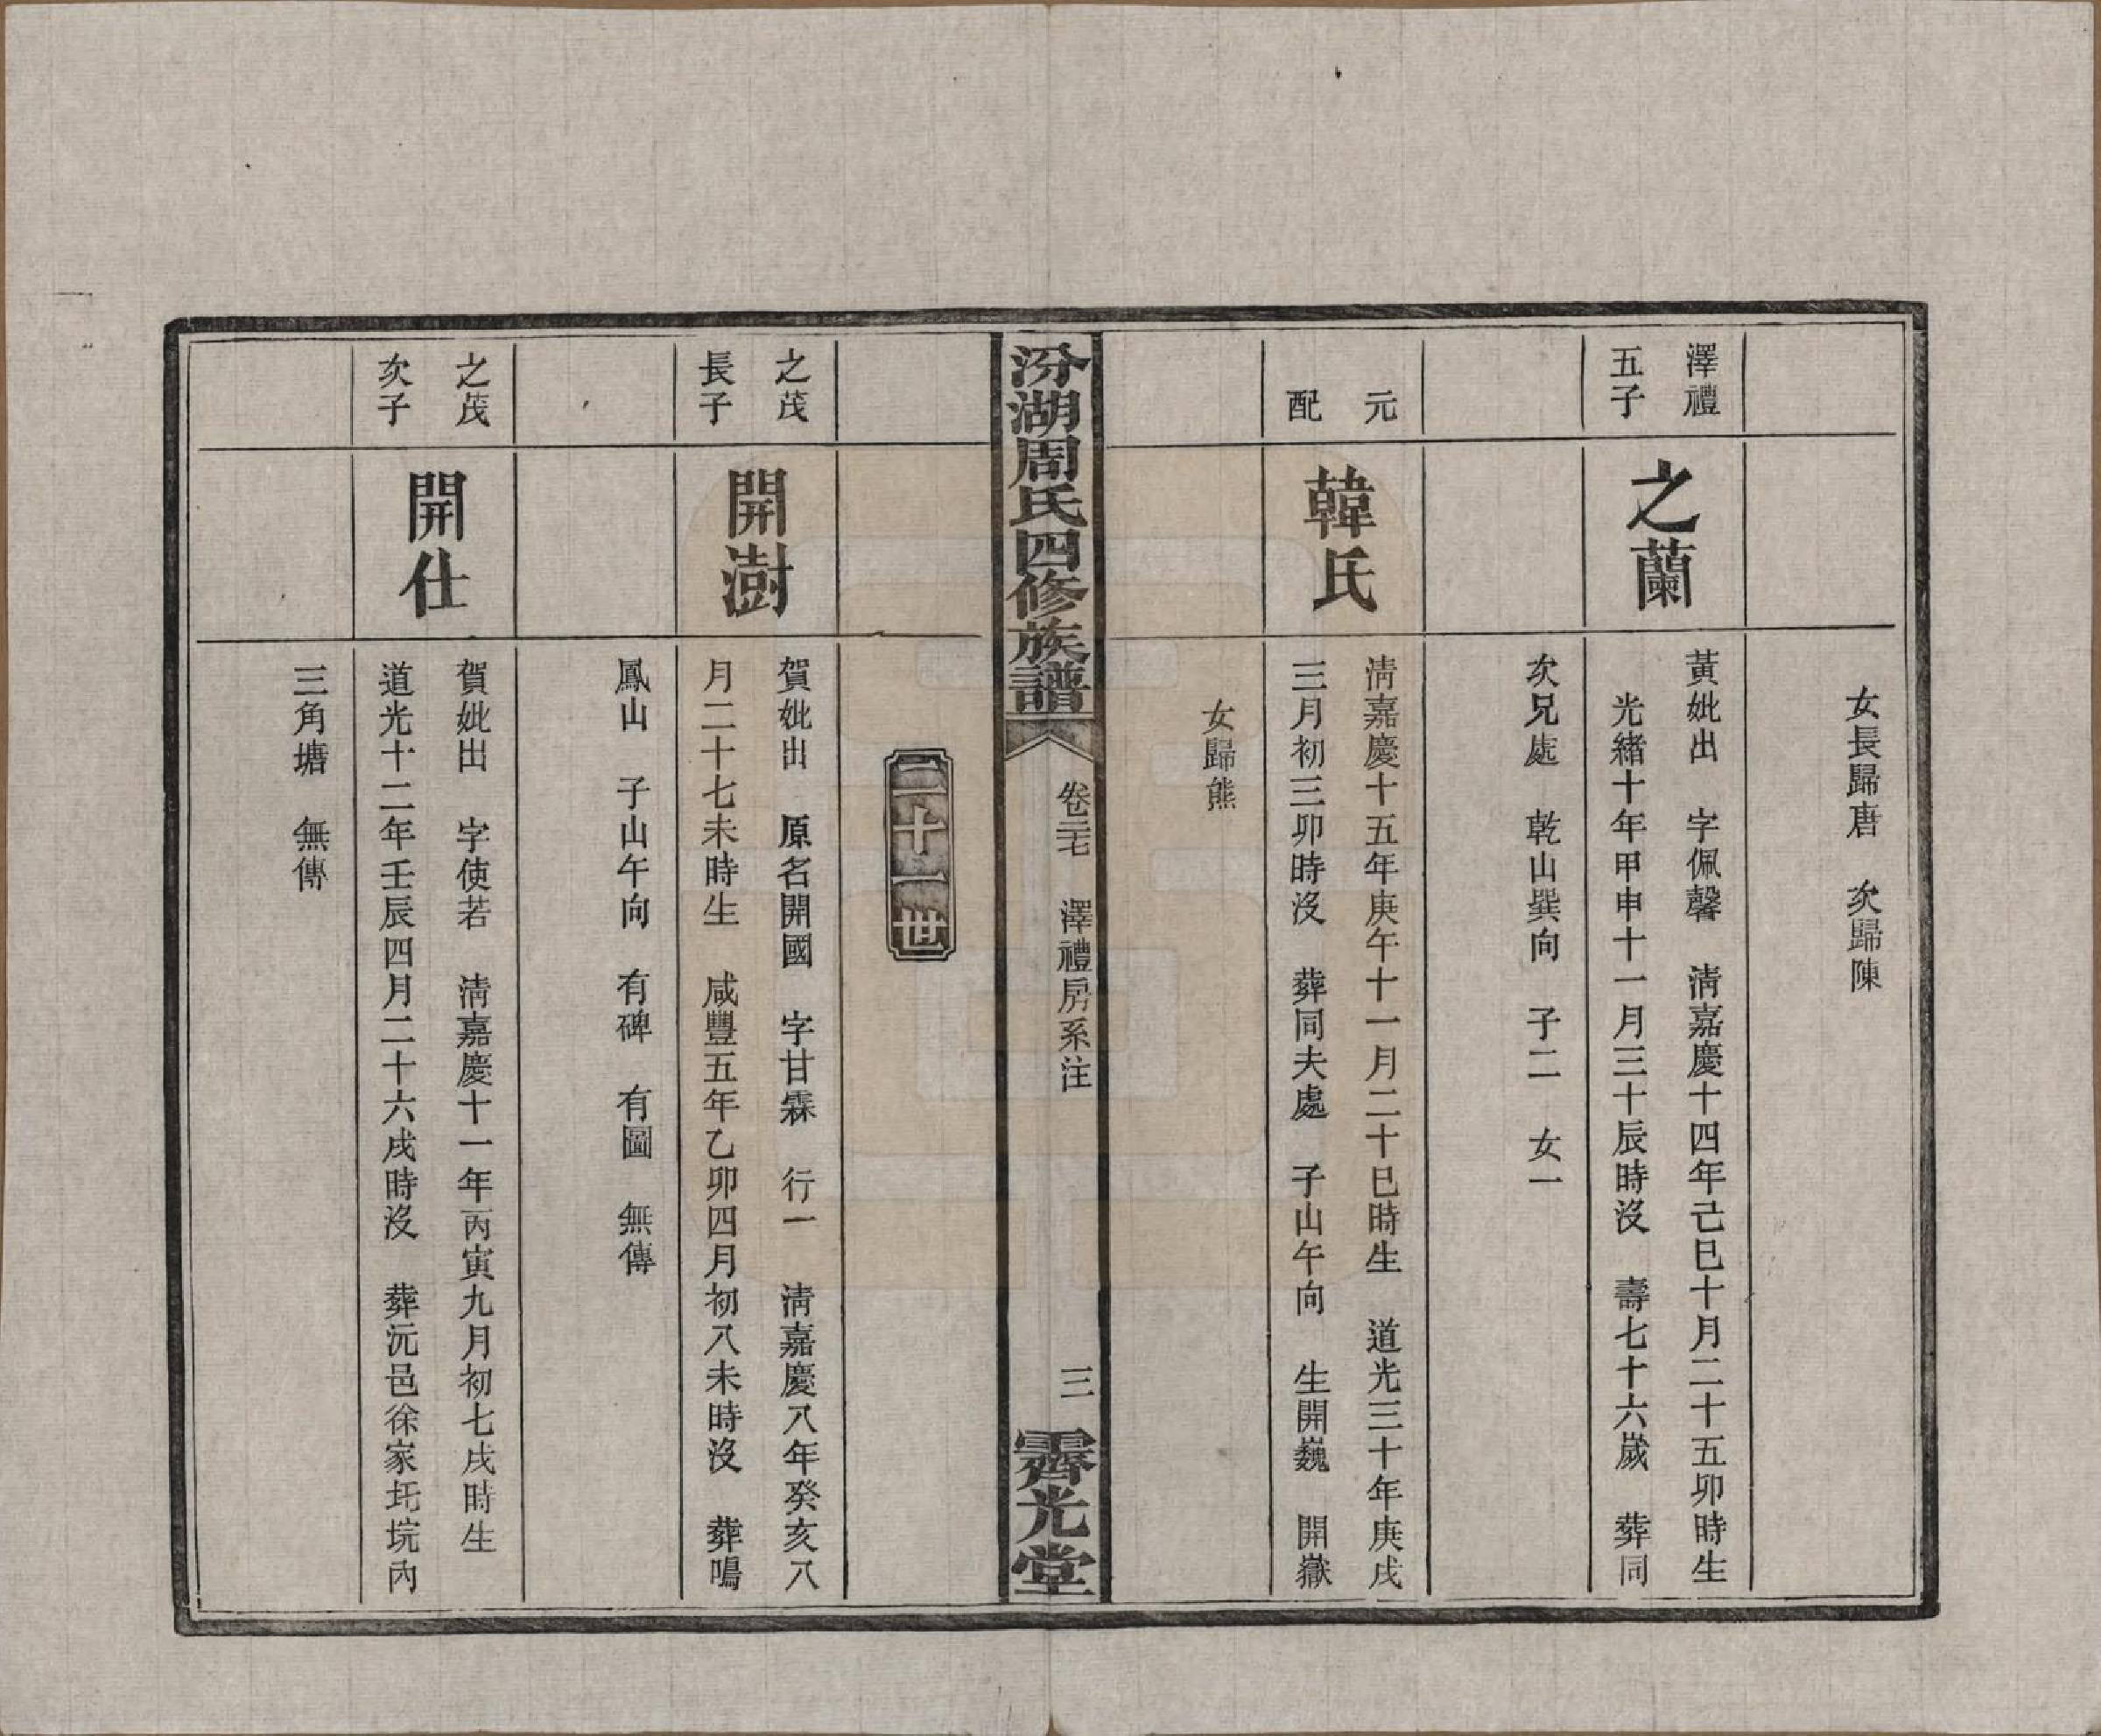 女長歸唐　次歸陳
澤禮
五子
之蘭
黃妣出　字佩馨　淸嘉慶十四年己巳十月二十五卯時生
光緖十年甲申十一月三十辰時沒　壽七十六歲　葬同
次兄處　乾山巽向　子二　女一
元
配
韓氏
淸嘉慶十五年庚午十一月二十巳時生　道光三十年庚戌
三月初三卯時沒　葬同夫處　子山午向　生開巍　開嶽
女歸熊
汾湖周氏四修族譜
卷二十七　澤禮房系注
三
霽光堂
二十一世
之茂
長子
開澍
賀妣出　原名開國　字甘霖　行一　淸嘉慶八年癸亥八
月二十七未時生　咸豐五年乙卯四月初八未時沒　葬鳴
鳳山　子山午向　有碑　有圖　無傳
之茂
次子
開仕
賀妣出　字使若　淸嘉慶十一年丙寅九月初七戌時生
道光十二年壬辰四月二十六戌時沒　葬沅邑徐家圫垸內
三角塘　無傳